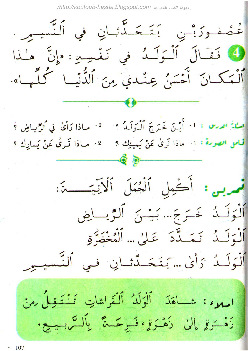 عُصْفُورَيْنِ يَتَحَدَّثَانِ فِي النَّسِيمِ.
4 فَقَالَ الْوَلَدُ فِي نَفْسِهِ: «إِنَّ هَذَا
الْمَكَانَ أَحْسَنُ عِنْدِي مِنَ الدُّنْيَا كُلِّهَا».
1- أَيْنَ خَرَجَ الْوَلَدُ ؟ 2- مَاذَا رَأَى فِي الرِّيَاضِ ؟
1- مَاذَا تَرَى عَنْ يَمِينِكَ ؟ 2- مَاذَا تَرَى عَنْ يَسَارِكَ ؟
تمرين : أَكْمِلِ الْجُمَلَ الْآتِيَةَ:
الْوَلَدُ خَرَجَ... بَيْنَ الرِّيَاضِ
الْوَلَدُ تَمَدَّدَ عَلَى... الْمُخْضَرَّةِ
الْوَلَدُ رَأَى ... يَتَحَدَّثَانِ فِي النَّسِيمِ
إملاء : شَاهَدَ الْوَلَدُ الْفَرَاشَاتِ تَنْتَقِلُ مِنْ
زَهْرَةٍ إِلَى زَهْرَةٍ فَرِحَةً بِالرَّبِيعِ.